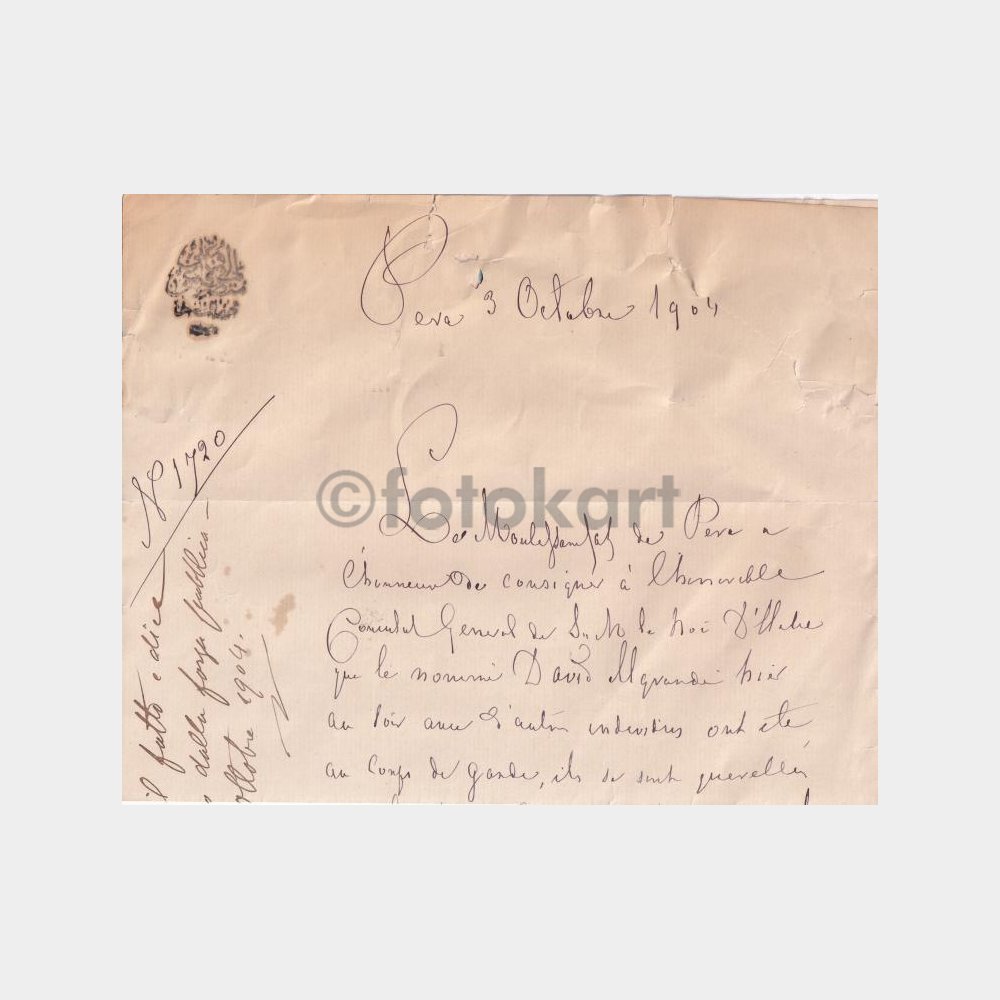 Pera 3 Octobre 1904
©fotokart
Le Moutessarifat de Pera a
l'honneur de consigner à l'honorable
Consulat General de S. M. le Roi D'Italie
que le nommé David hier
au soir avec d'autres individus ont été
au Corps de garde, ils se sont querellés
No 1720
il fatto e dice
dalla forza pubblica —
ottobre 1904.